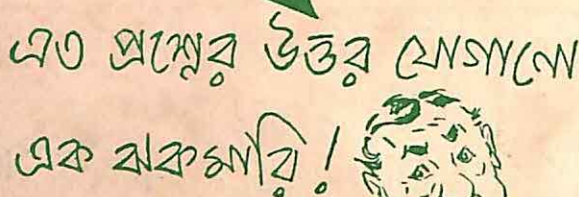 এত প্রশ্নের উত্তর যোগানো
এক ঝকমারি!